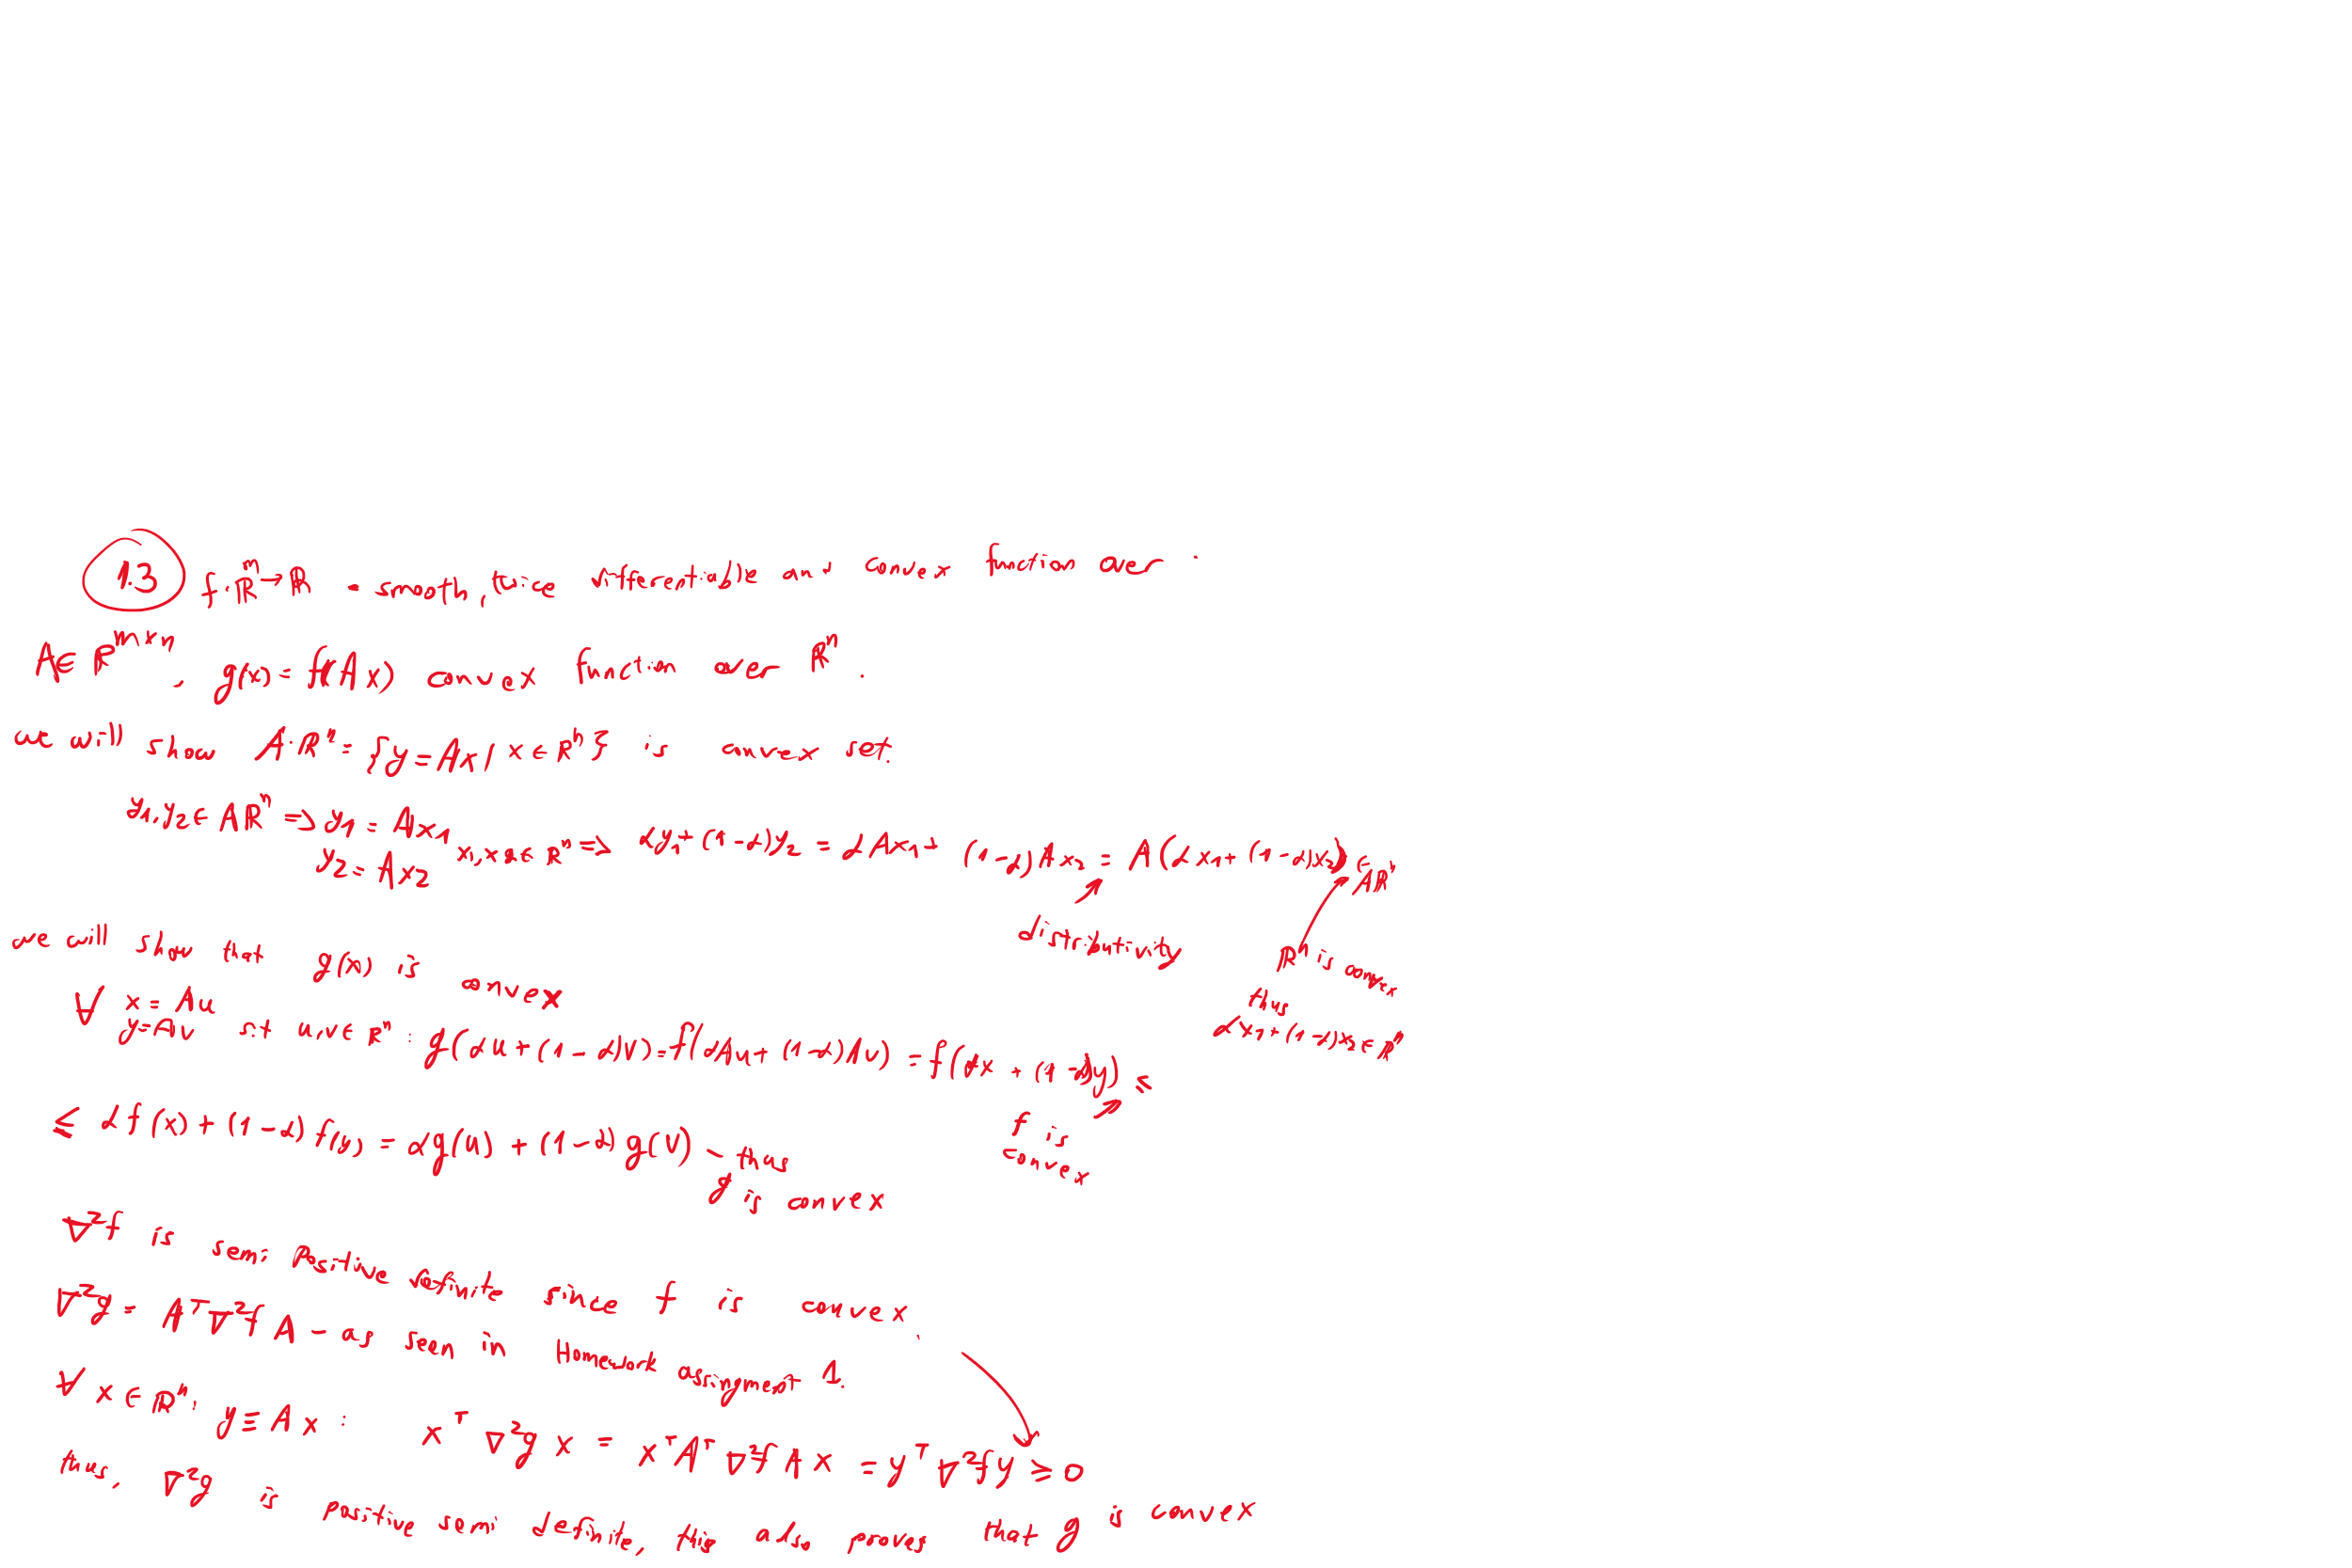 1.3 f: ℝ^m → ℝ - smooth, twice differentiable and convex function over .
A ∈ ℝ^{m×n}, g(x) = f(Ax) convex function over ℝ^n.
we will show A·ℝ^n = {y = Ax | x ∈ ℝ^n} is convex set.
y₁, y₂ ∈ Aℝ^n ⇒ y₁ = Ax₁
y₂ = Ax₂ x₁, x₂ ∈ ℝ^n ⇒ αy₁ + (1-α)y₂ = αAx₁ + (1-α)Ax₂ = A(αx₁ + (1-α)x₂) ∈ Aℝ^n
distributivity
ℝ^n is convex
thus
αx₁ + (1-α)x₂ ∈ ℝ^n
we will show that g(x) is convex
∀ x = Au
y = Av s.t u,v ∈ ℝ^n : g(αu + (1-α)v) = f(αAu + (1-α)Av) = f(αx + (1-α)y) ≤
f is
convex
≤ αf(x) + (1-α)f(y) = αg(u) + (1-α)g(v) - thus
g is convex
∇²f is semi positive definite since f is convex.
∇²g = A^T∇²f A - as seen in Homework assingment 1.
∀ x ∈ ℝ^n: y ≡ Ax : x^T ∇²g x = x^T A^T ∇²f A x = y^T ∇²f y ≥ 0
thus, ∇²g is positive semi definite, this also proves that g is convex